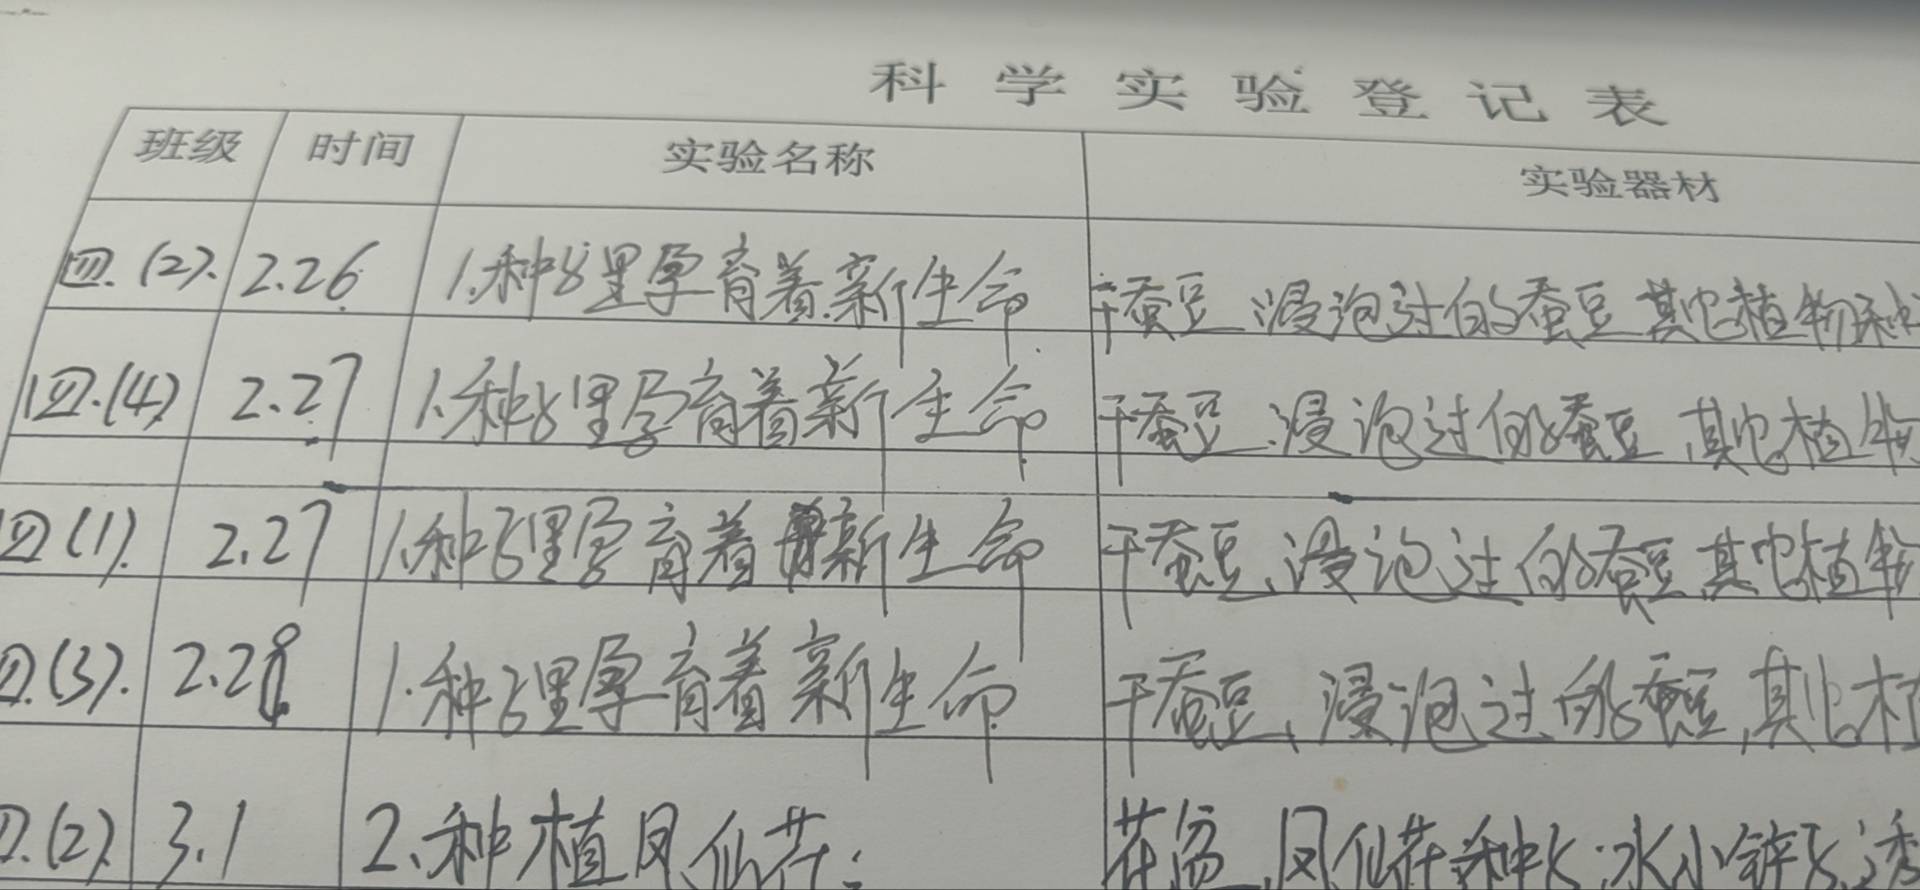 科学实验登记表
班级 时间 实验名称 实验器材
四.(2). 2.26 1.种子里孕育着新生命 干蚕豆、浸泡过的蚕豆、其它植物种
四.(4) 2.27 1.种子里孕育着新生命 干蚕豆、浸泡过的蚕豆、其它植物
四(1). 2.27 1.种子里孕育着新生命 干蚕豆、浸泡过的蚕豆、其它植物
四.(3). 2.28 1.种子里孕育着新生命 干蚕豆、浸泡过的蚕豆、其它植
四.(2) 3.1 2.种植凤仙花. 花盆、凤仙花种子、水、小铲子、透